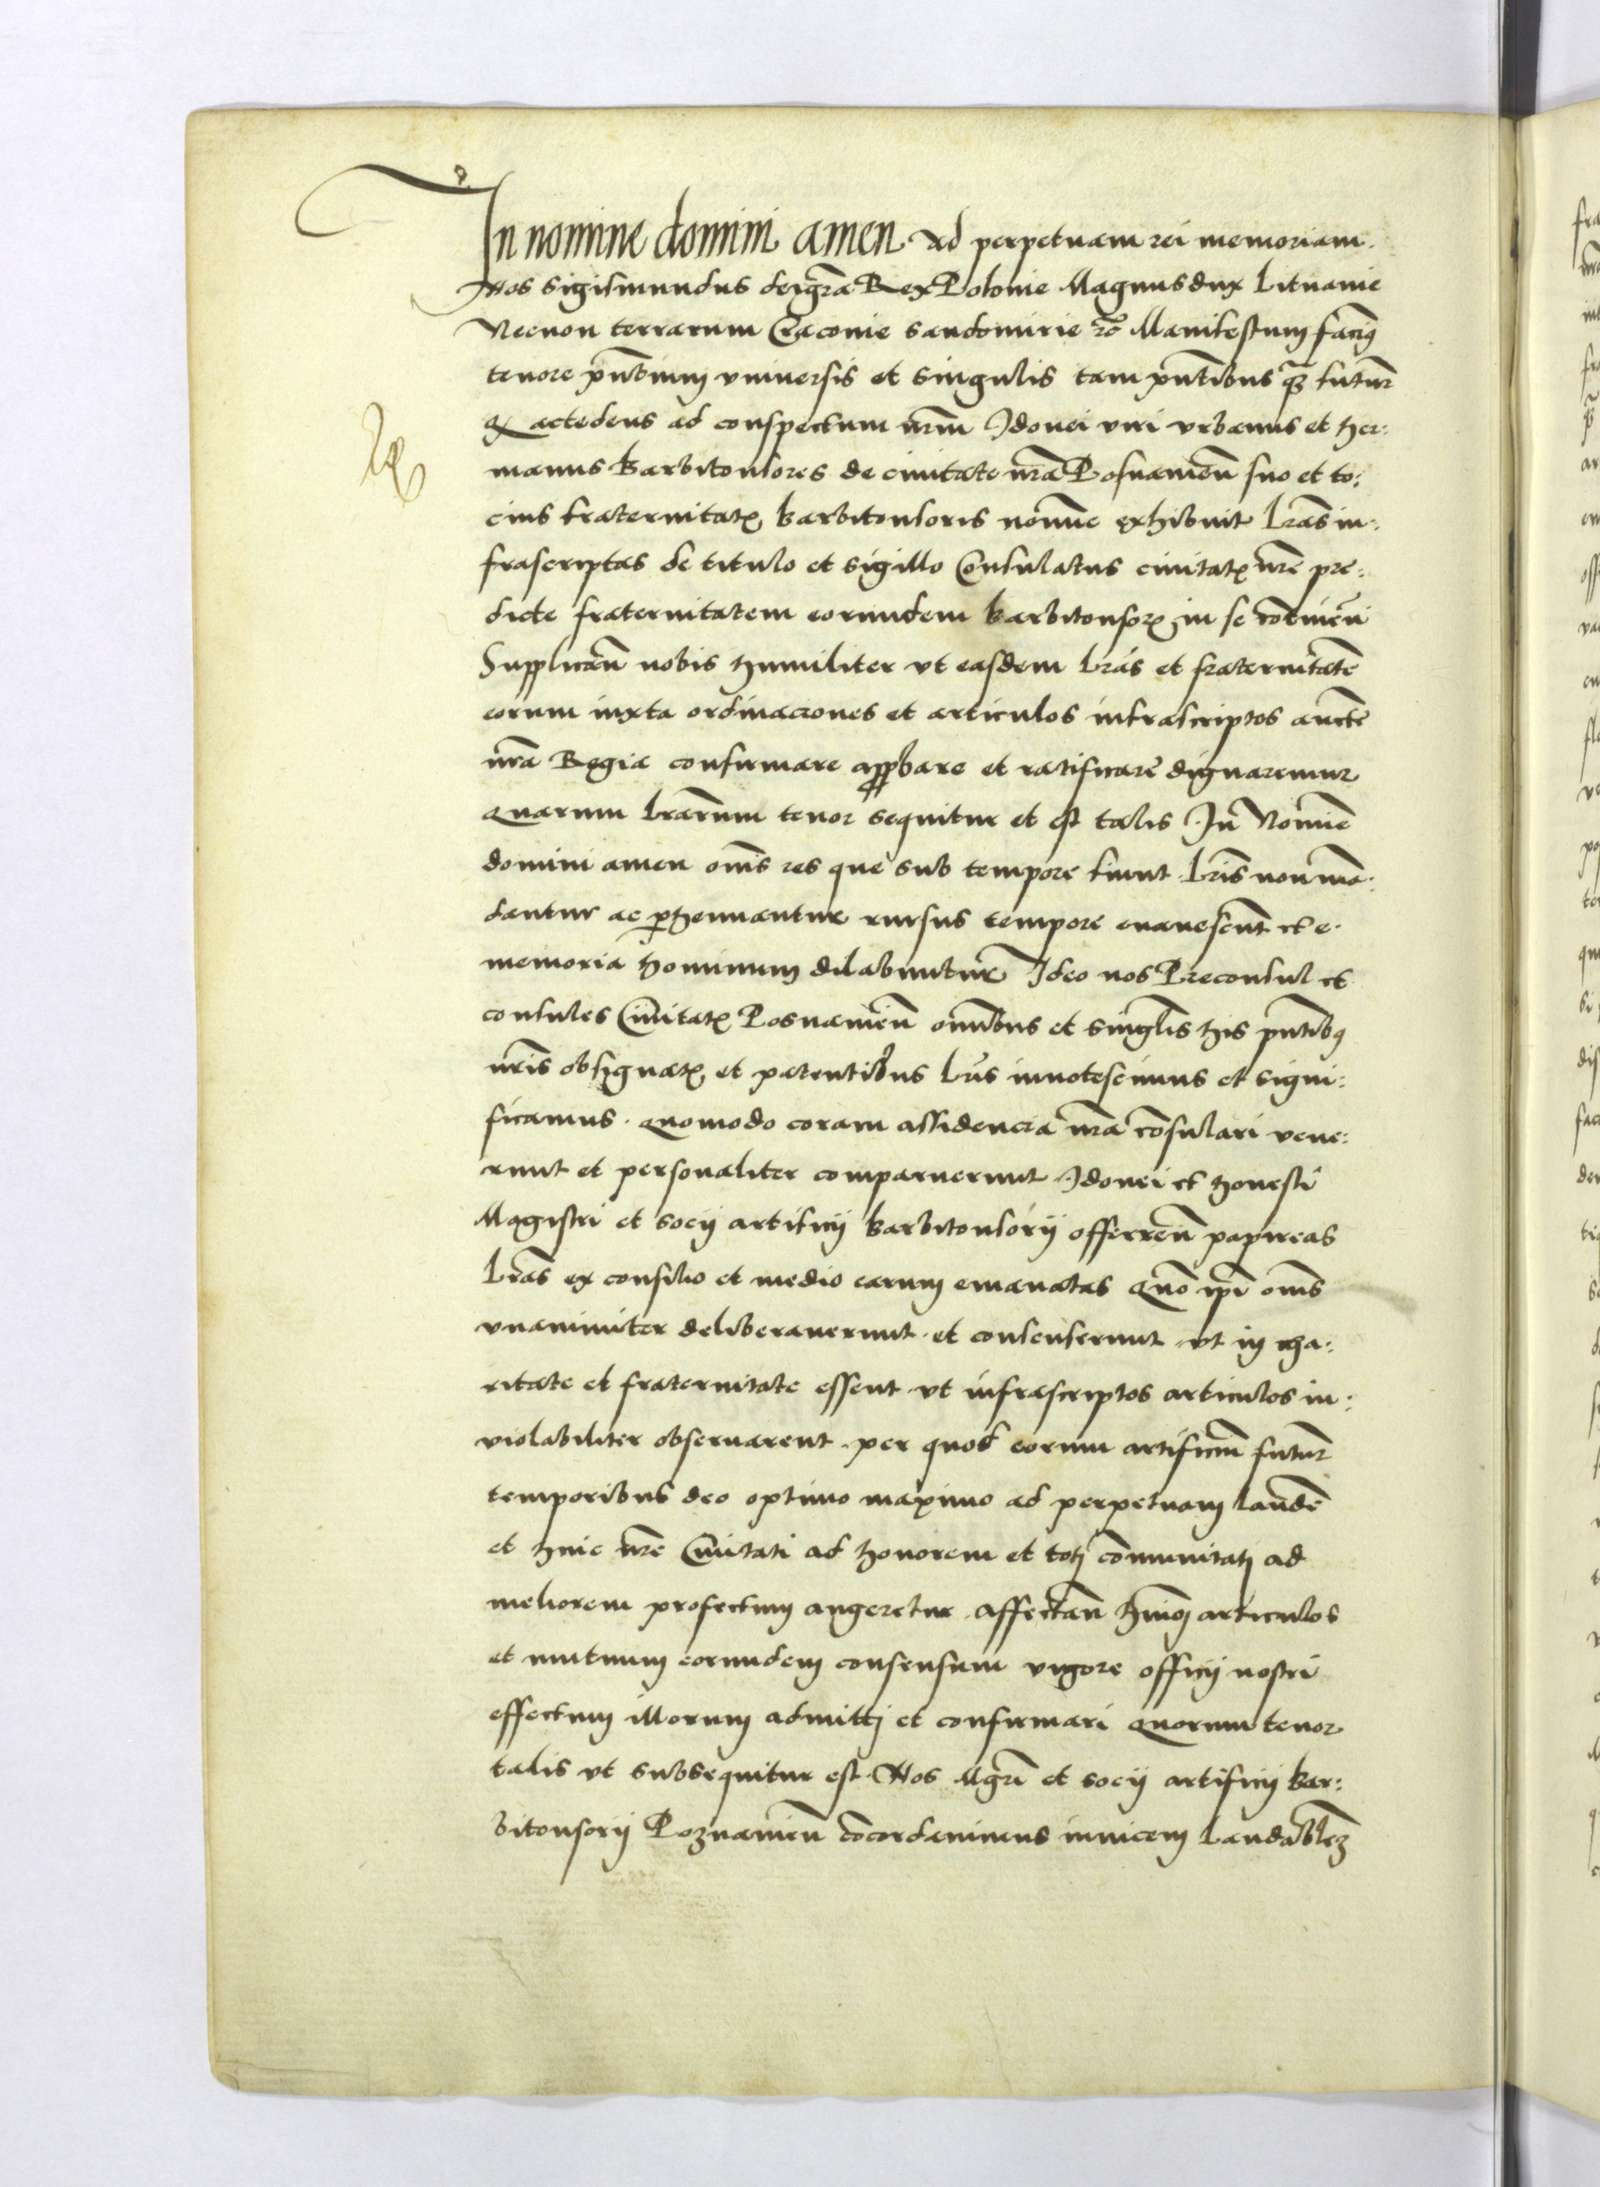 In nomine domini amen Ad perpetuam rei memoriam.
Nos Sigismundus dei gr̃a Rex Polonie Magnus dux Lituanie
Necnon terrarum Craconie Sandomirie zc̃ Manifestum facim9
tenore pñtium vniuersis et singulis tam pñtibus q̃ȝ futur̃
accedens ad conspectum nr̃m Idonei viri vrbanus et Her:
manus barbitonsores de ciuitate nr̃a Posnanien̄ suo et to:
cius fraternitatꝭ barbitonsoris nomĩe exhibuit lr̃as in:
frascriptas de titulo et sigillo Consulatus ciuitatꝭ nr̃e pre:
dicte fraternitatem eorundem barbitonsoꝝ in se contineñ
Supplicañ nobis humiliter vt easdem lr̃as et fraternitatẽ
eorum iuxta ordinaciones et articulos infrascriptos auctẽ
nr̃a Regia confirmare approbare et ratificare dignaremur
Quarum lr̃arum tenor sequitur et est talis In Nomĩe
domini amen om̃s res que sub tempore fiunt lr̃is non mã:
dantur ac perhennantur rursus tempore euanescũt et e
memoria hominum dilabuntur Ideo nos Preconsul et
consules Ciuitatꝭ Posnanieñ omĩbus et singl̃is his pñtib9
nr̃is obsignatꝭ et patentibus lr̃is innotescimus et signi:
ficamus. Quomodo coram assidencia nr̃a cõsulari vene:
runt et personaliter comparuerunt Idonei et honesti
Magistri et socij artificij barbitonsorij offerreñ papireas
lr̃as ex consilio et medio earum emanatas Quõ ip̃i om̃s
vnanimiter deliberauerunt et consenserunt vt in cha:
ritate et fraternitate essent vt infrascriptos articulos in:
violabiliter obseruarent per quod eorum artificiũ futur̃
temporibus deo optimo maximo ad perpetuam laudẽ
et huic nr̃e Ciuitati ad honorem et toti cõmunitati ad
meliorem profectum augeretur affectañ hmõi articulos
et mutuum eorundem consensum vigore officij nostri
effectum illorum admitti et confirmari Quorum tenor
talis vt subsequitur est Nos Mgr̃i et socij artificij bar:
bitonsorij Poznanieñ cõcordauimus inuicem laudabl̃eȝ